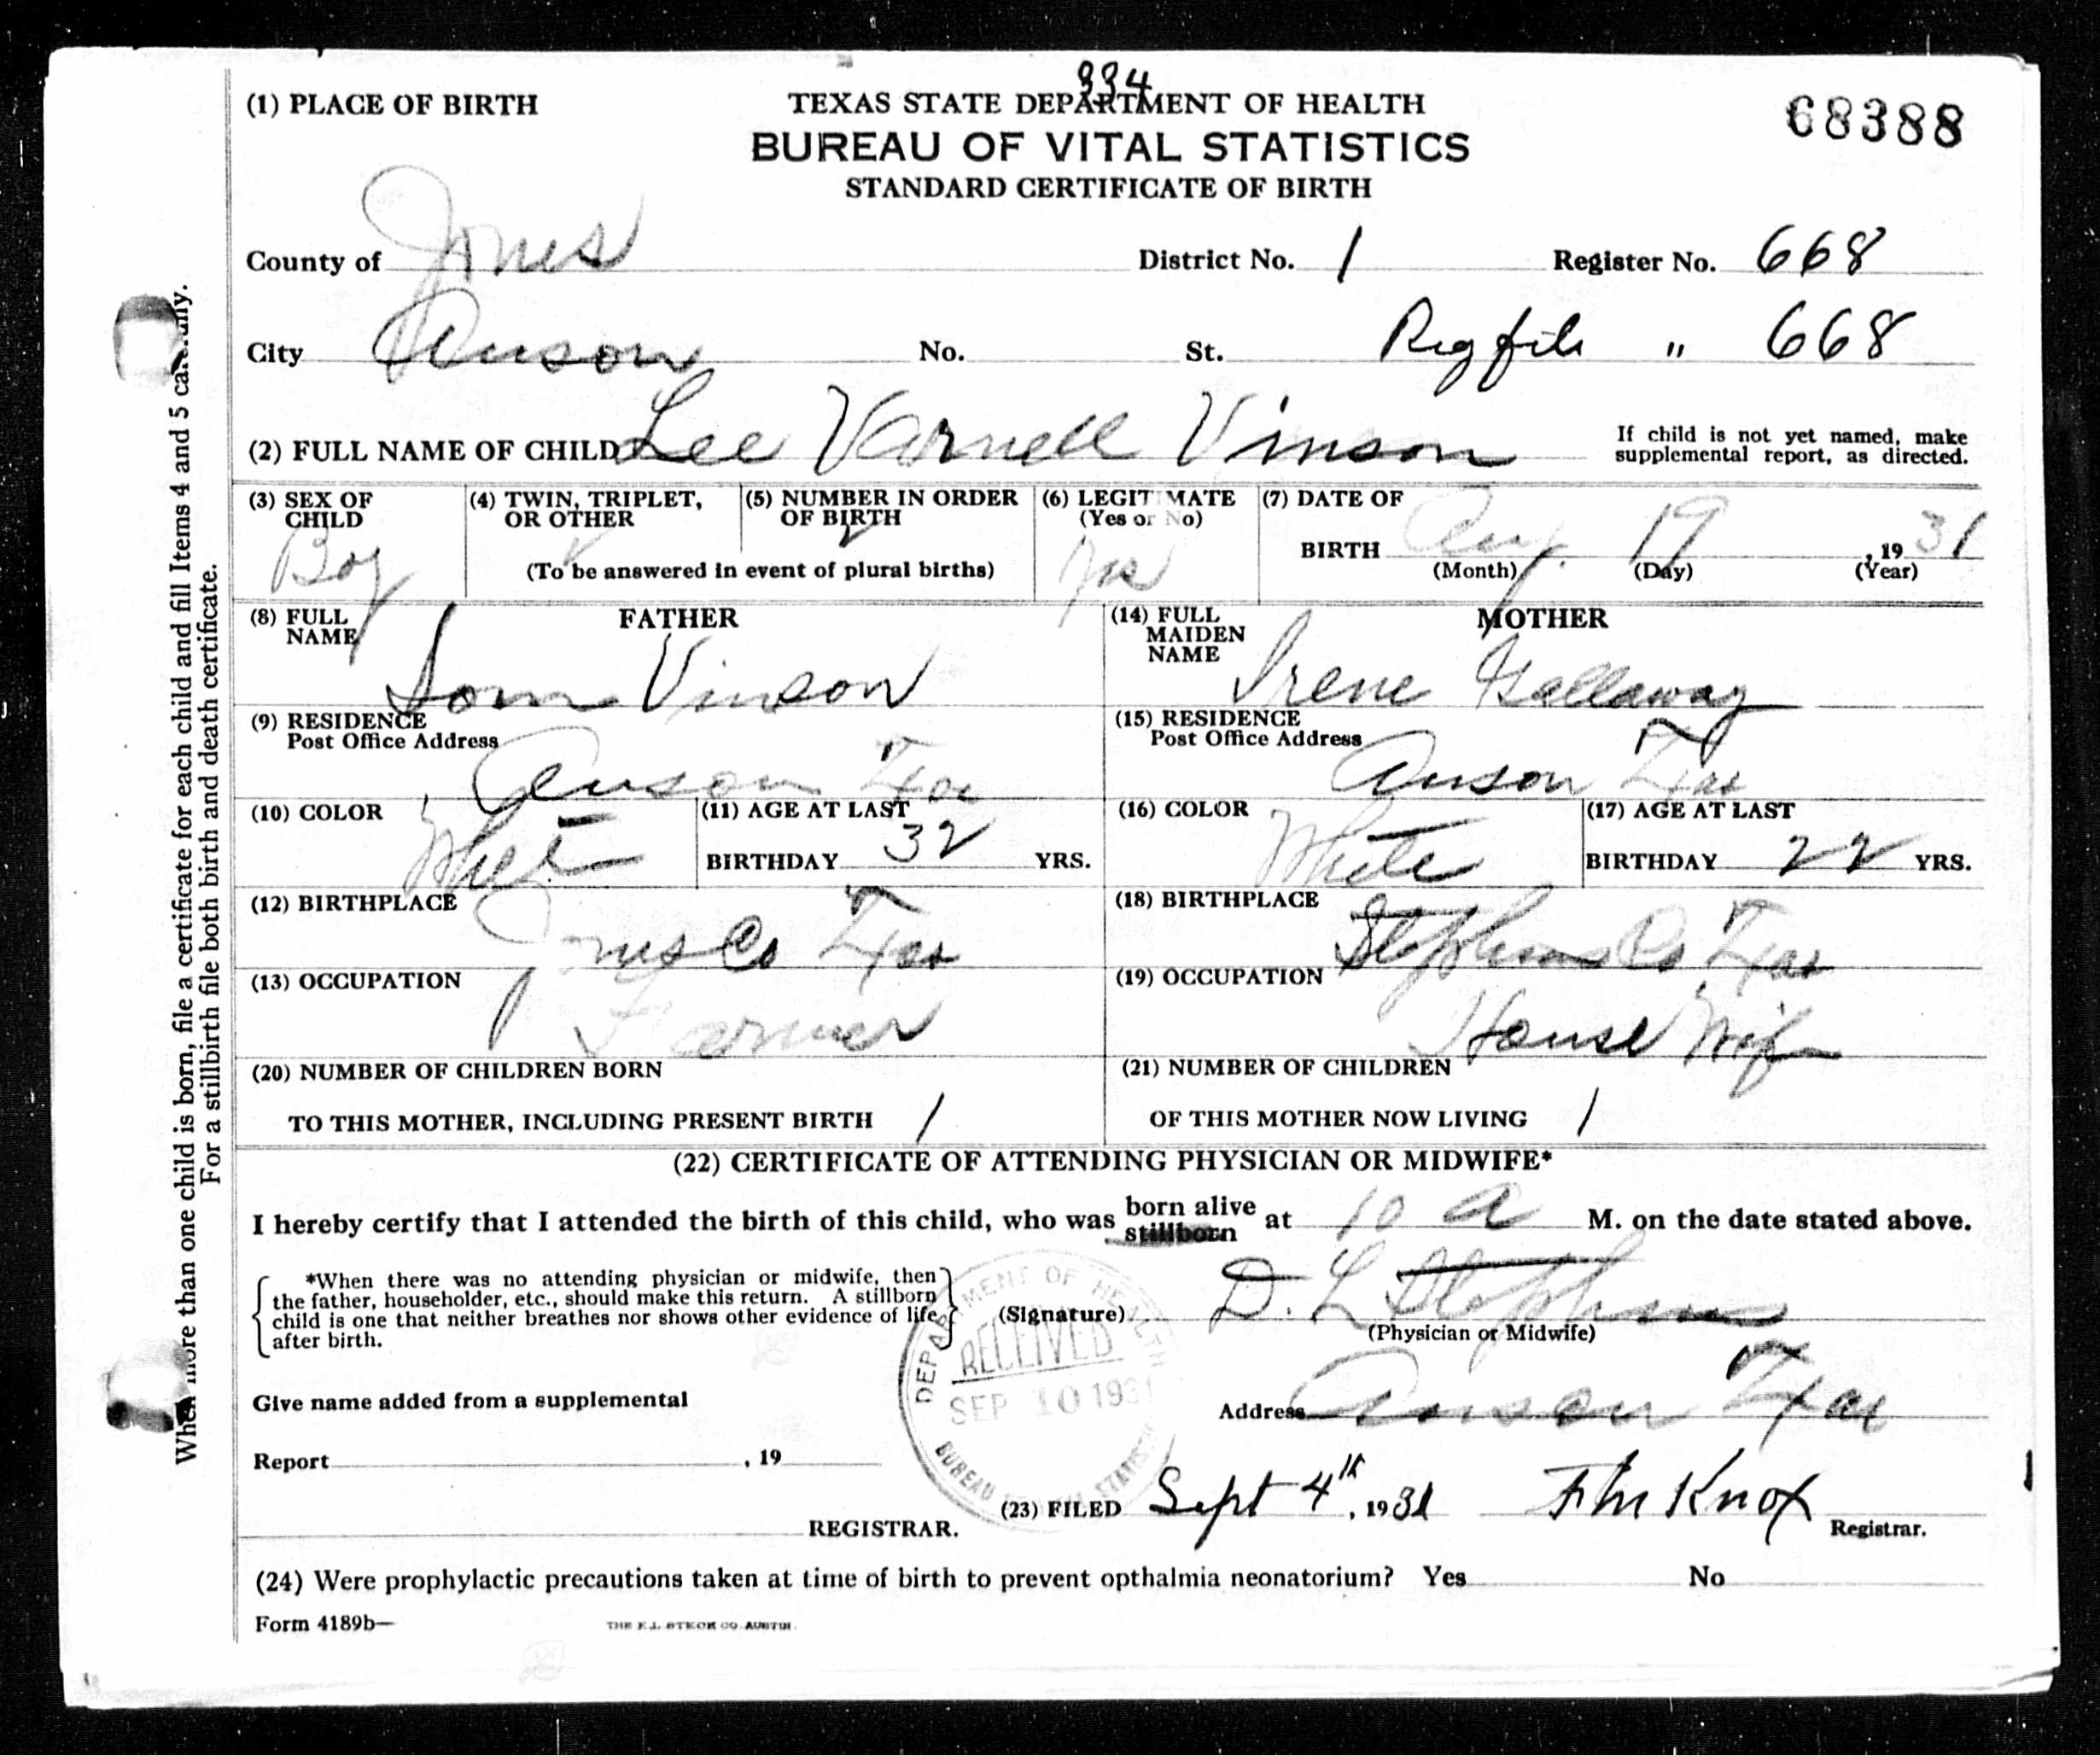 334
(1) PLACE OF BIRTH TEXAS STATE DEPARTMENT OF HEALTH 68388
BUREAU OF VITAL STATISTICS
STANDARD CERTIFICATE OF BIRTH
County of Jones District No. 1 Register No. 668
City Anson No. St. Reg file " 668
(2) FULL NAME OF CHILD Lee Varnell Vinson If child is not yet named, make
supplemental report, as directed.
(3) SEX OF CHILD Boy
(4) TWIN, TRIPLET, OR OTHER
(5) NUMBER IN ORDER OF BIRTH
(To be answered in event of plural births)
(6) LEGITIMATE (Yes or No) Yes
(7) DATE OF
BIRTH Aug. 19, 1931
(Month) (Day) (Year)
FATHER
(8) FULL NAME Vinson
(9) RESIDENCE
Post Office Address Anson Tex
(10) COLOR White
(11) AGE AT LAST
BIRTHDAY 32 YRS.
(12) BIRTHPLACE Jones Co Tex
(13) OCCUPATION Farmer
MOTHER
(14) FULL MAIDEN NAME Irene Gallaway
(15) RESIDENCE
Post Office Address Anson Tex
(16) COLOR White
(17) AGE AT LAST
BIRTHDAY 22 YRS.
(18) BIRTHPLACE Stephens Co Tex
(19) OCCUPATION House Wife
(20) NUMBER OF CHILDREN BORN
TO THIS MOTHER, INCLUDING PRESENT BIRTH 1
(21) NUMBER OF CHILDREN
OF THIS MOTHER NOW LIVING 1
(22) CERTIFICATE OF ATTENDING PHYSICIAN OR MIDWIFE*
I hereby certify that I attended the birth of this child, who was born alive stillborn at 10 a M. on the date stated above.
*When there was no attending physician or midwife, then
the father, householder, etc., should make this return. A stillborn
child is one that neither breathes nor shows other evidence of life
after birth.
DEPARTMENT OF HEALTH
RECEIVED
SEP 10 1931
BUREAU
(Signature) D. L Stephens
(Physician or Midwife)
Give name added from a supplemental
Address Anson Tex
Report , 19
(23) FILED Sept 4th, 1931 Knox Registrar.
REGISTRAR.
(24) Were prophylactic precautions taken at time of birth to prevent opthalmia neonatorium? Yes No
Form 4189b—
When more than one child is born, file a certificate for each child and fill Items 4 and 5 carefully.
For a stillbirth file both birth and death certificate.